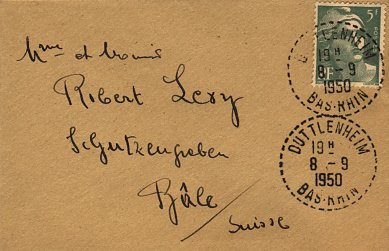 Mme et Monsieur
Robert Levy
Schutzengraben
Bâle
Suisse
5F
RF
DUTTLENHEIM
19H
8 -9
1950
BAS-RHIN
DUTTLENHEIM
19H
8 -9
1950
BAS-RHIN